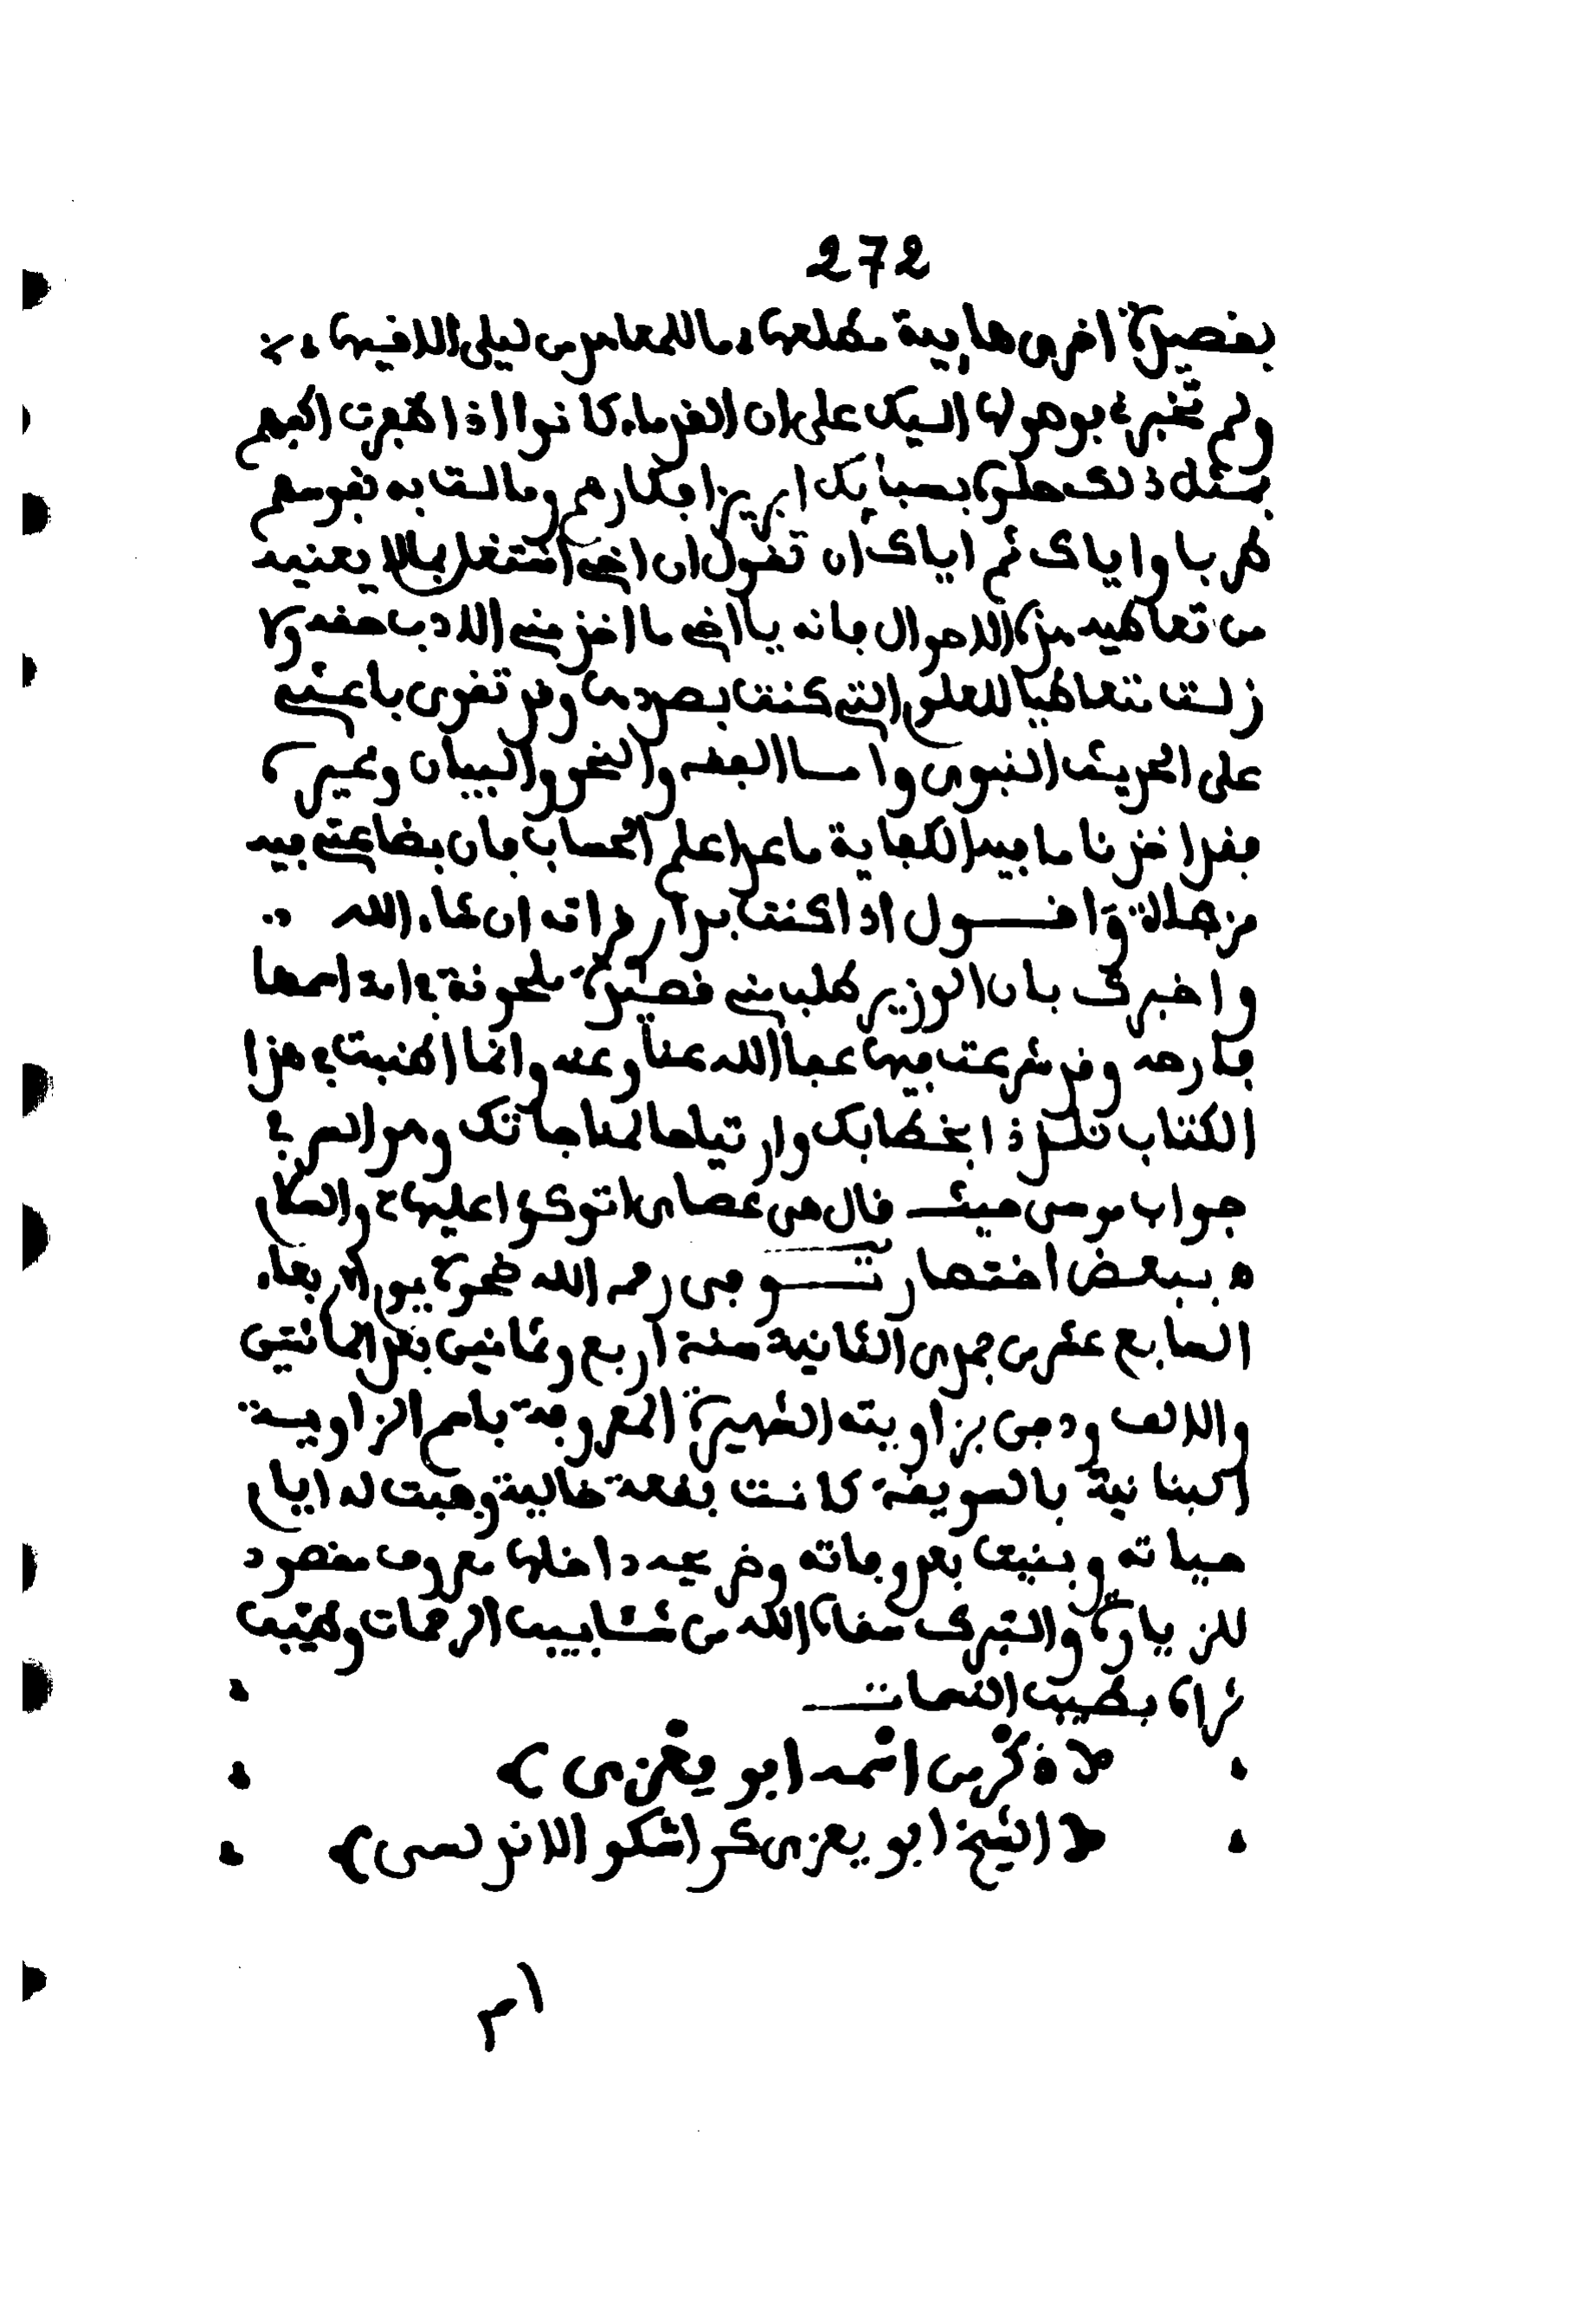 272
بقصيدة اخرى هايية مطلعها، ما للمعاهد من ليلى الاقيها ∴
ولم تخبرني بوصولها اليك على ان القدماء كانوا اذا ظفرت اكفهم
بمثل ذلك صلوا بسبايك ابريز افكارهم وما لت به نفوسهم
طربا واياك ثم اياك ان تقول ان اخي اشتغل بما لا يعنيه
من تعاطيه هذه الاحوال فانه يا اخي ما اخذ مني الادب حقه ولا
زلت متعاطيا للعلوم التي كنت بصددها وقد تقوى باعثي
على الحديث النبوي وامـا الفقه والنحو والبيان وغيره
فقد اخذنا ما فيه الكفاية ما عدا علم الحساب فان بضاعتي فيه
مزجاة واقـــول اذا كنت بدار قراته ان شاء الله
واخبرك بان الوزير طلب مني قصيدة ملحونة في امة اسمها
فارحه وقد شرعت فيها عفا الله عنا وعنه وانما اطنبت في هذا
الكتاب تلذذا بخطابك وارتياحا لمناجاتك وهو السر في
جواب موسى حيث قال هي عصاي اتوكؤا عليها، والسلام
ه ببعض اختصار تــوفى رحمه الله ضحوة يوم الاربعاء
السابع عشر من جمدى الثانية سنة اربع وثمانين بعد المائتين
والالف ودفن بزاويته الشهيرة المعروفة باسم الزاويـة
البنانية بالسويقة كانت بقعة خالية وهبت له ايام
حياته وبنيت بعد وفاته وضريحه داخلها معروف مقصود
للزيارة والتبرك سقاه الله من شئابيب الرحمات وطيب
ثراه بطيب النسمات
﴿ ذكر من اسمه ابو يعزى ﴾
﴿ الشيخ ابو يعزى كراشكو الاندلسي ﴾